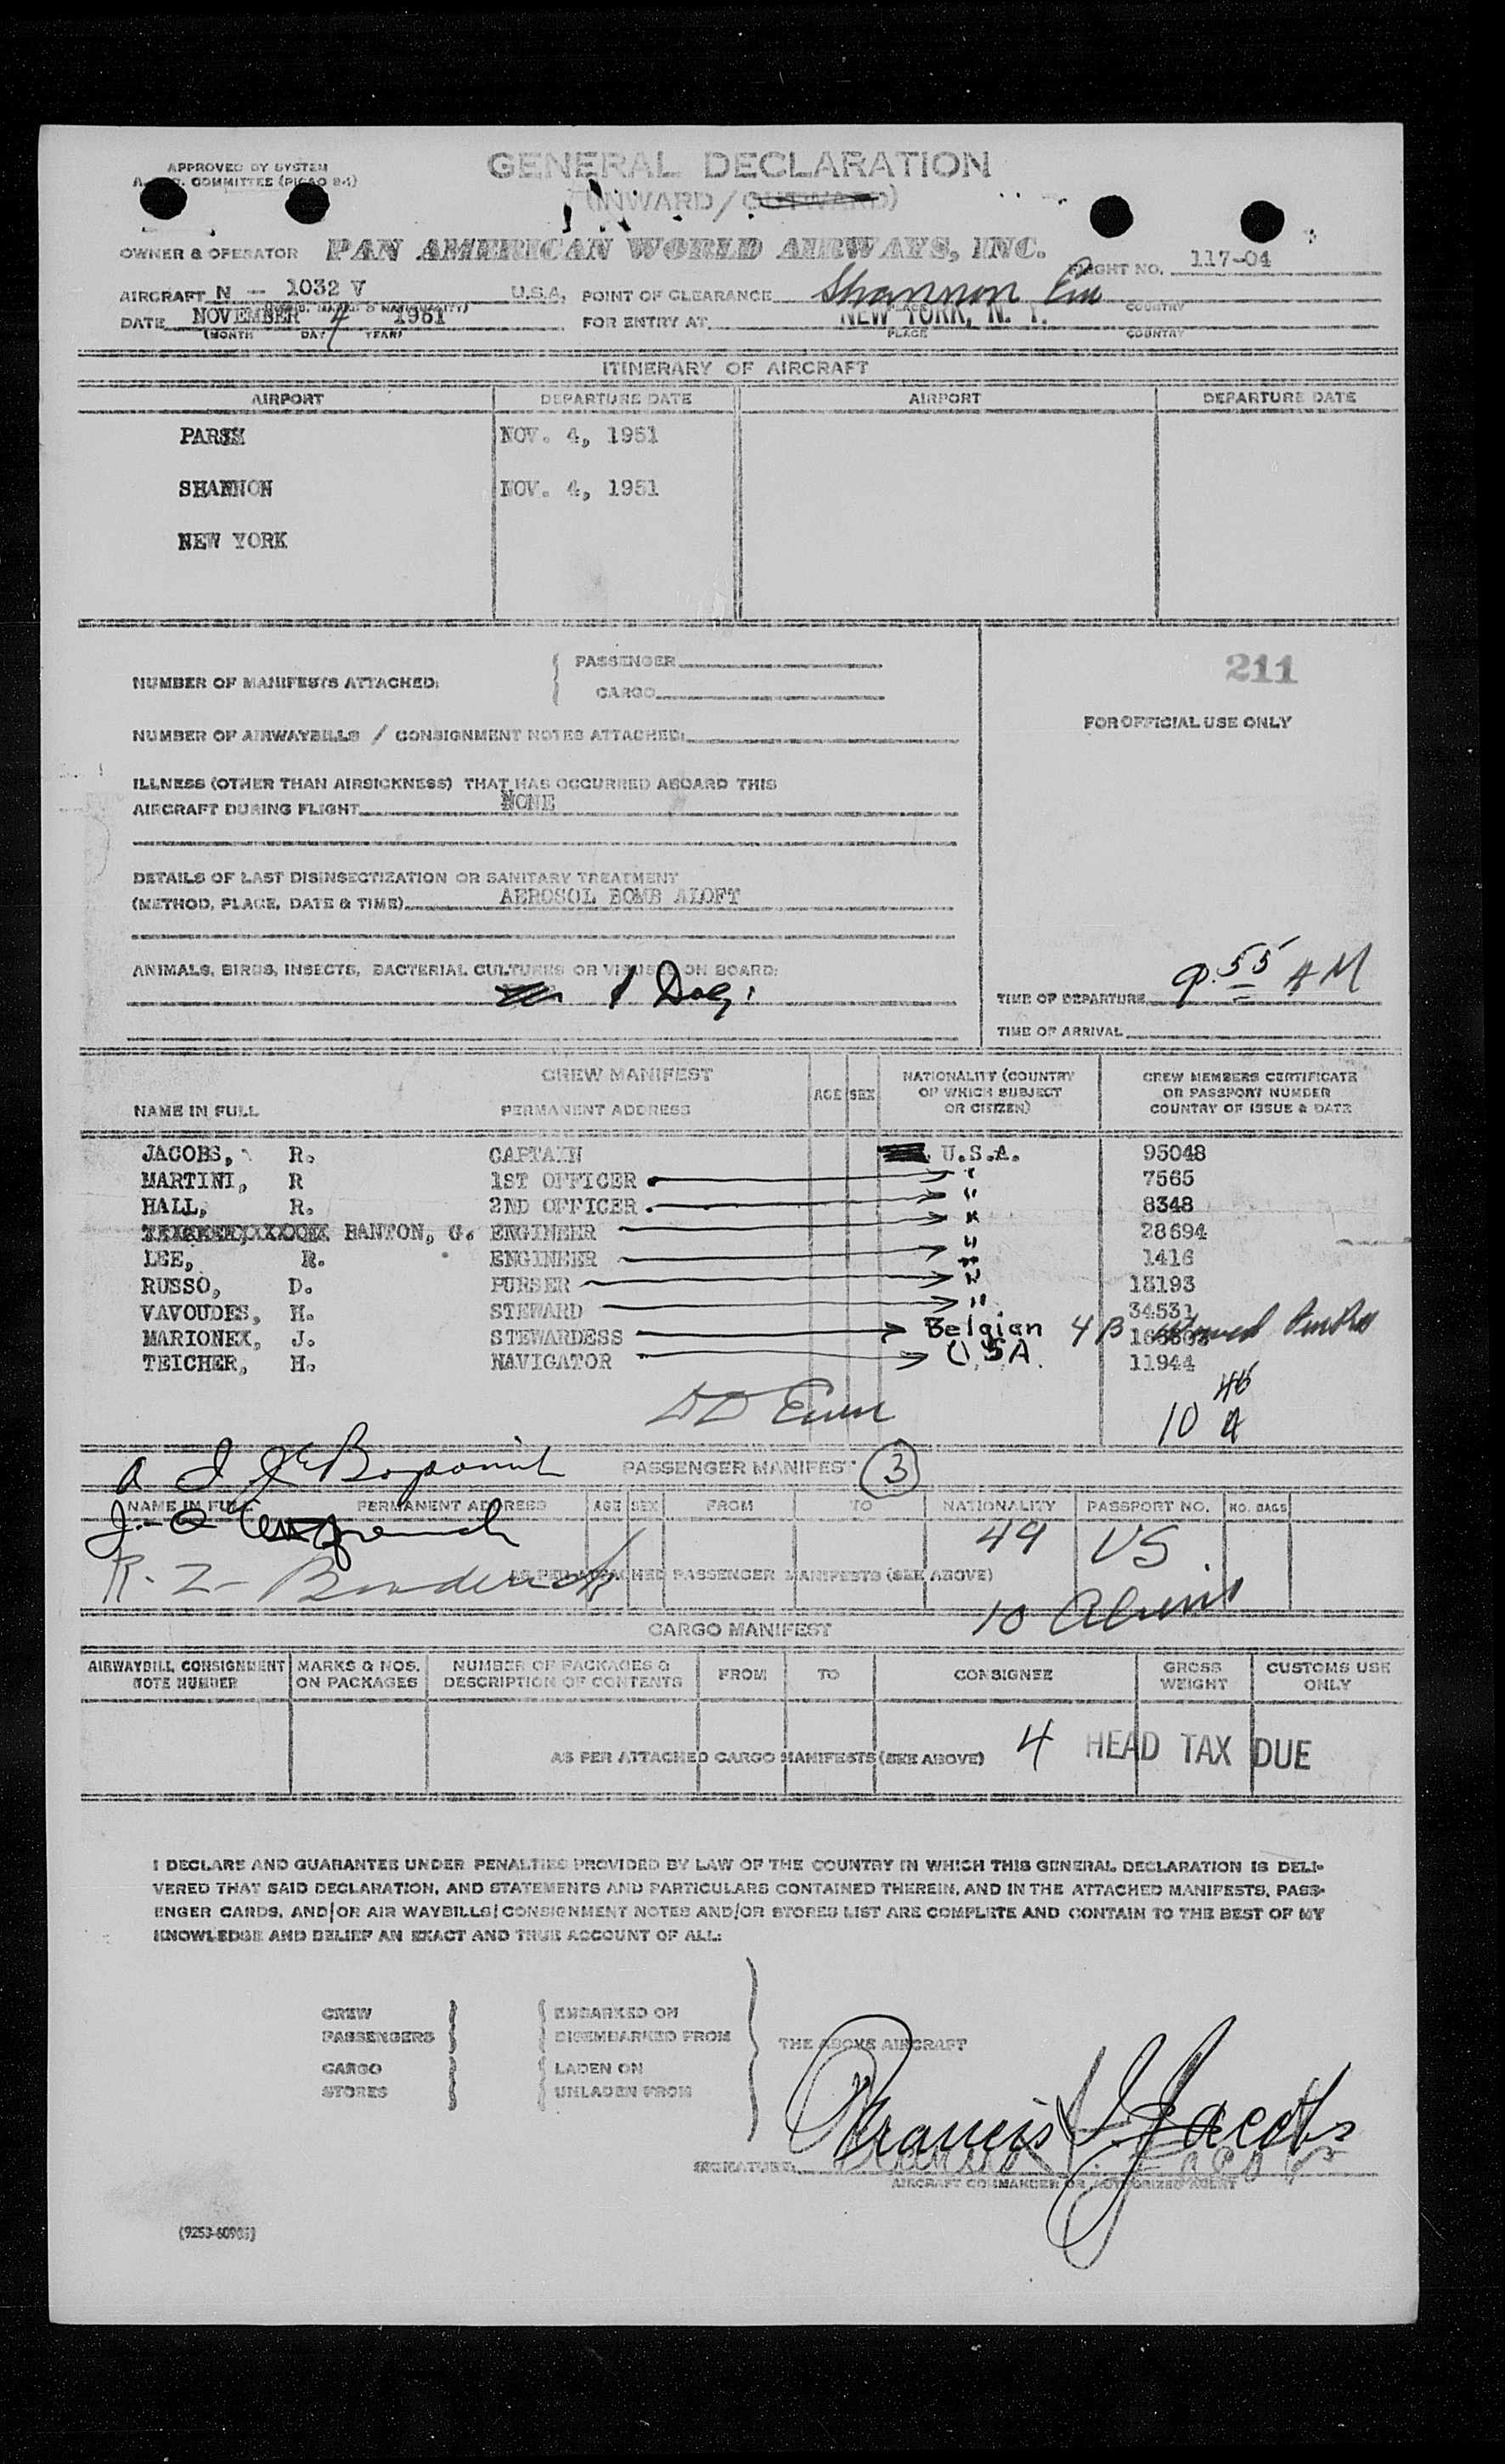 APPROVED BY SYSTEM
COMMITTEE (PICAO 9-1)
GENERAL DECLARATION
(INWARD/OUTWARD)
OWNER & OPERATOR PAN AMERICAN WORLD AIRWAYS, INC.
FLIGHT NO. 117-04
AIRCRAFT N - 1032 V U.S.A. POINT OF CLEARANCE Shannon
PLACE COUNTRY
DATE NOVEMBER 4 1951 FOR ENTRY AT NEW YORK, N. Y.
(MONTH DAY YEAR) PLACE COUNTRY
ITINERARY OF AIRCRAFT
AIRPORT DEPARTURE DATE AIRPORT DEPARTURE DATE
PARIS NOV. 4, 1951
SHANNON NOV. 4, 1951
NEW YORK
211
FOR OFFICIAL USE ONLY
NUMBER OF MANIFESTS ATTACHED: PASSENGER
CARGO
NUMBER OF AIRWAYBILLS / CONSIGNMENT NOTES ATTACHED:
ILLNESS (OTHER THAN AIRSICKNESS) THAT HAS OCCURRED ABOARD THIS
AIRCRAFT DURING FLIGHT NONE
DETAILS OF LAST DISINSECTIZATION OR SANITARY TREATMENT
(METHOD, PLACE, DATE & TIME) AEROSOL BOMB ALOFT
ANIMALS, BIRDS, INSECTS, BACTERIAL CULTURES OR VIRUSES ON BOARD:
1 Dog.
TIME OF DEPARTURE 9.55 AM
TIME OF ARRIVAL
CREW MANIFEST
NAME IN FULL PERMANENT ADDRESS AGE SEX NATIONALITY (COUNTRY OF WHICH SUBJECT OR CITIZEN) CREW MEMBERS CERTIFICATE OR PASSPORT NUMBER COUNTRY OF ISSUE & DATE
JACOBS, R. CAPTAIN U.S.A. 95048
MARTINI, R 1ST OFFICER " 7565
HALL, R. 2ND OFFICER " 8348
BANTON, G. ENGINEER " 28694
LEE, R. ENGINEER " 1416
RUSSO, D. PURSER " 18193
VAVOUDES, H. STEWARD " 34531
MARIONEX, J. STEWARDESS Belgian 4 B
TEICHER, H. NAVIGATOR USA. 11944
10
PASSENGER MANIFEST 3
NAME IN FULL PERMANENT ADDRESS AGE SEX FROM TO NATIONALITY PASSPORT NO. NO. BAGS
49 US
AS PER ATTACHED PASSENGER MANIFESTS (SEE ABOVE)
10 Aliens
CARGO MANIFEST
AIRWAYBILL CONSIGNMENT NOTE NUMBER MARKS & NOS. ON PACKAGES NUMBER OF PACKAGES & DESCRIPTION OF CONTENTS FROM TO CONSIGNEE GROSS WEIGHT CUSTOMS USE ONLY
AS PER ATTACHED CARGO MANIFESTS (SEE ABOVE) 4 HEAD TAX DUE
I DECLARE AND GUARANTEE UNDER PENALTIES PROVIDED BY LAW OF THE COUNTRY IN WHICH THIS GENERAL DECLARATION IS DELI-
VERED THAT SAID DECLARATION, AND STATEMENTS AND PARTICULARS CONTAINED THEREIN, AND IN THE ATTACHED MANIFESTS, PASS-
ENGER CARDS, AND/OR AIR WAYBILLS/CONSIGNMENT NOTES AND/OR STORES LIST ARE COMPLETE AND CONTAIN TO THE BEST OF MY
KNOWLEDGE AND BELIEF AN EXACT AND TRUE ACCOUNT OF ALL:
CREW EMBARKED ON
PASSENGERS DISEMBARKED FROM
THE ABOVE AIRCRAFT
CARGO LADEN ON
STORES UNLADEN FROM
Francis J. Jacobs
SIGNATURE:
AIRCRAFT COMMANDER OR AUTHORIZED AGENT